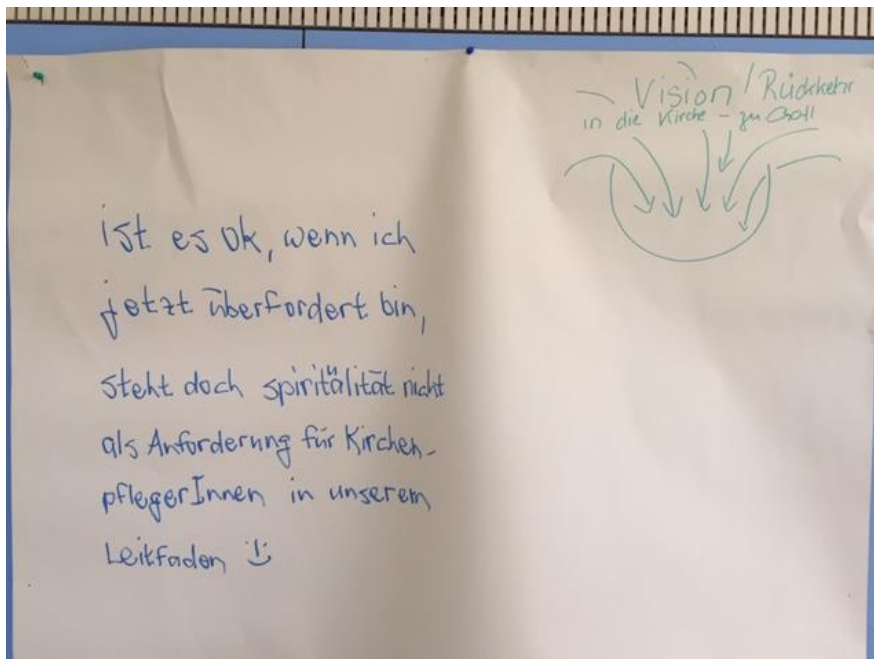 Vision / Rückkehr
in die Kirche - zu Gott
ist es ok, wenn ich
jetzt überfordert bin,
steht doch spiritälität nicht
als Anforderung für Kirchen-
pflegerInnen in unserem
Leitfaden